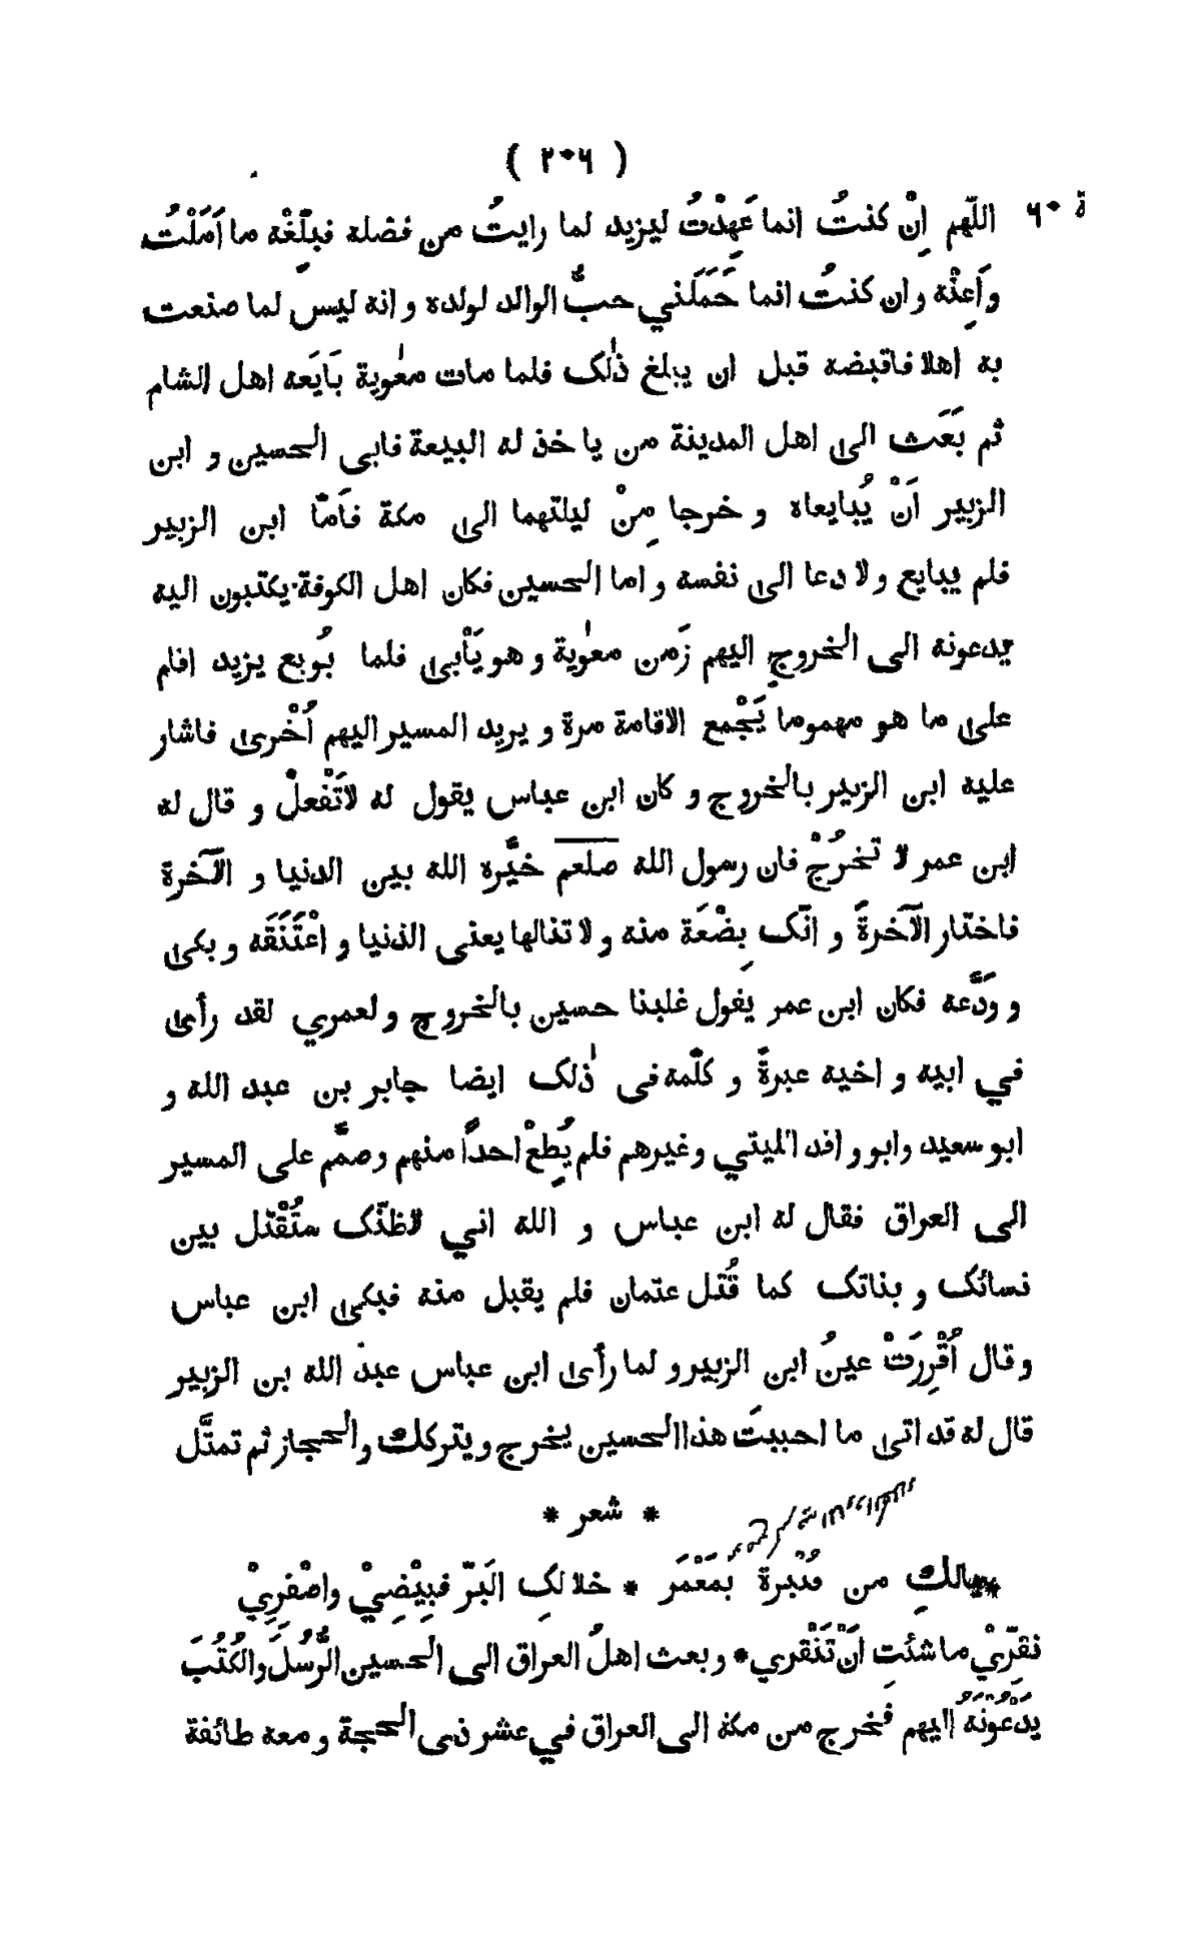 ( ٢٠٦ )
ة ٦٠ اللّهم اِنْ كنتُ انما عَهِدْتُ ليزيد لما رايتُ من فضله فبلّغْه ما اَمَلْتُ
واَعِنْه وان كنتُ انما حَمَلَني حبُّ الوالد لولده و انه ليس لما صنعت
به اهلا فاقبضه قبل ان يبلغ ذٰلک فلما مات معٰوية بَايَعه اهل الشام
ثم بَعَث الى اهل المدينة من يا خذ له البيعة فابى الحسين و ابن
الزبير اَنْ يُبايعاه و خرجا مِنْ ليلتهما الى مكة فاَمّا ابن الزبير
فلم يبايع و لا دعا الى نفسه و اما الحسين فكان اهل الكوفة يكتبون اليه
يدعونه الى الخروجِ اليهم زَمن معٰوية و هو يَاْبى فلما بُوبع يزيد اقام
على ما هو مهموما يَجْمع الاقامة مرة و يريد المسير اليهم اُخْرى فاشار
عليه ابن الزبير بالخروج و كان ابن عباس يقول له لاتَفْعلْ و قال له
ابن عمر لا تخرُجْ فان رسول الله صلعم خيَّره الله بين الدنيا و الآخرة
فاختار الآخرةَ و انّک بِضْعَة منه و لا تنالها يعنى الدنيا و اعْتَنَقَه و بكى
و ودَّعه فكان ابن عمر يقول غلبنا حسين بالخروج و لعمري لقد رأى
في ابيه و اخيه عبرةً و كلّمه فى ذٰلک ايضا جابر بن عبد الله و
ابو سعيد وابو و اقد الليثي و غيرهم فلم يُطِعْ احداً منهم و صمَّم على المسير
الى العراق فقال له ابن عباس و الله اني لاظنّک ستُقْتل بين
نسائک و بناتک كما قُتل عثمان فلم يقبل منه فبكى ابن عباس
و قال اُقْرِرَتْ عينُ ابن الزبير و لما رأى ابن عباس عبد الله بن الزبير
قال له قد اتى ما احببتَ هذا الحسين يخرج و يتركک والحجاز ثم تمثَّل
* شعر *
يالكِ من قُنْبرة بمَعْمَر * خلا لكِ البَرّ فبِيْضِيْ واصْفِرِيْ
نقّرِيْ ما شئتِ اَنْ تَنْقري* و بعث اهلُ العراق الى الحسين الرُّسُلَ والكُتُبَ
يَدْعُونَهُ اليهم فخرج من مكة الى العراق في عشر ذى الحجة و معه طائفة